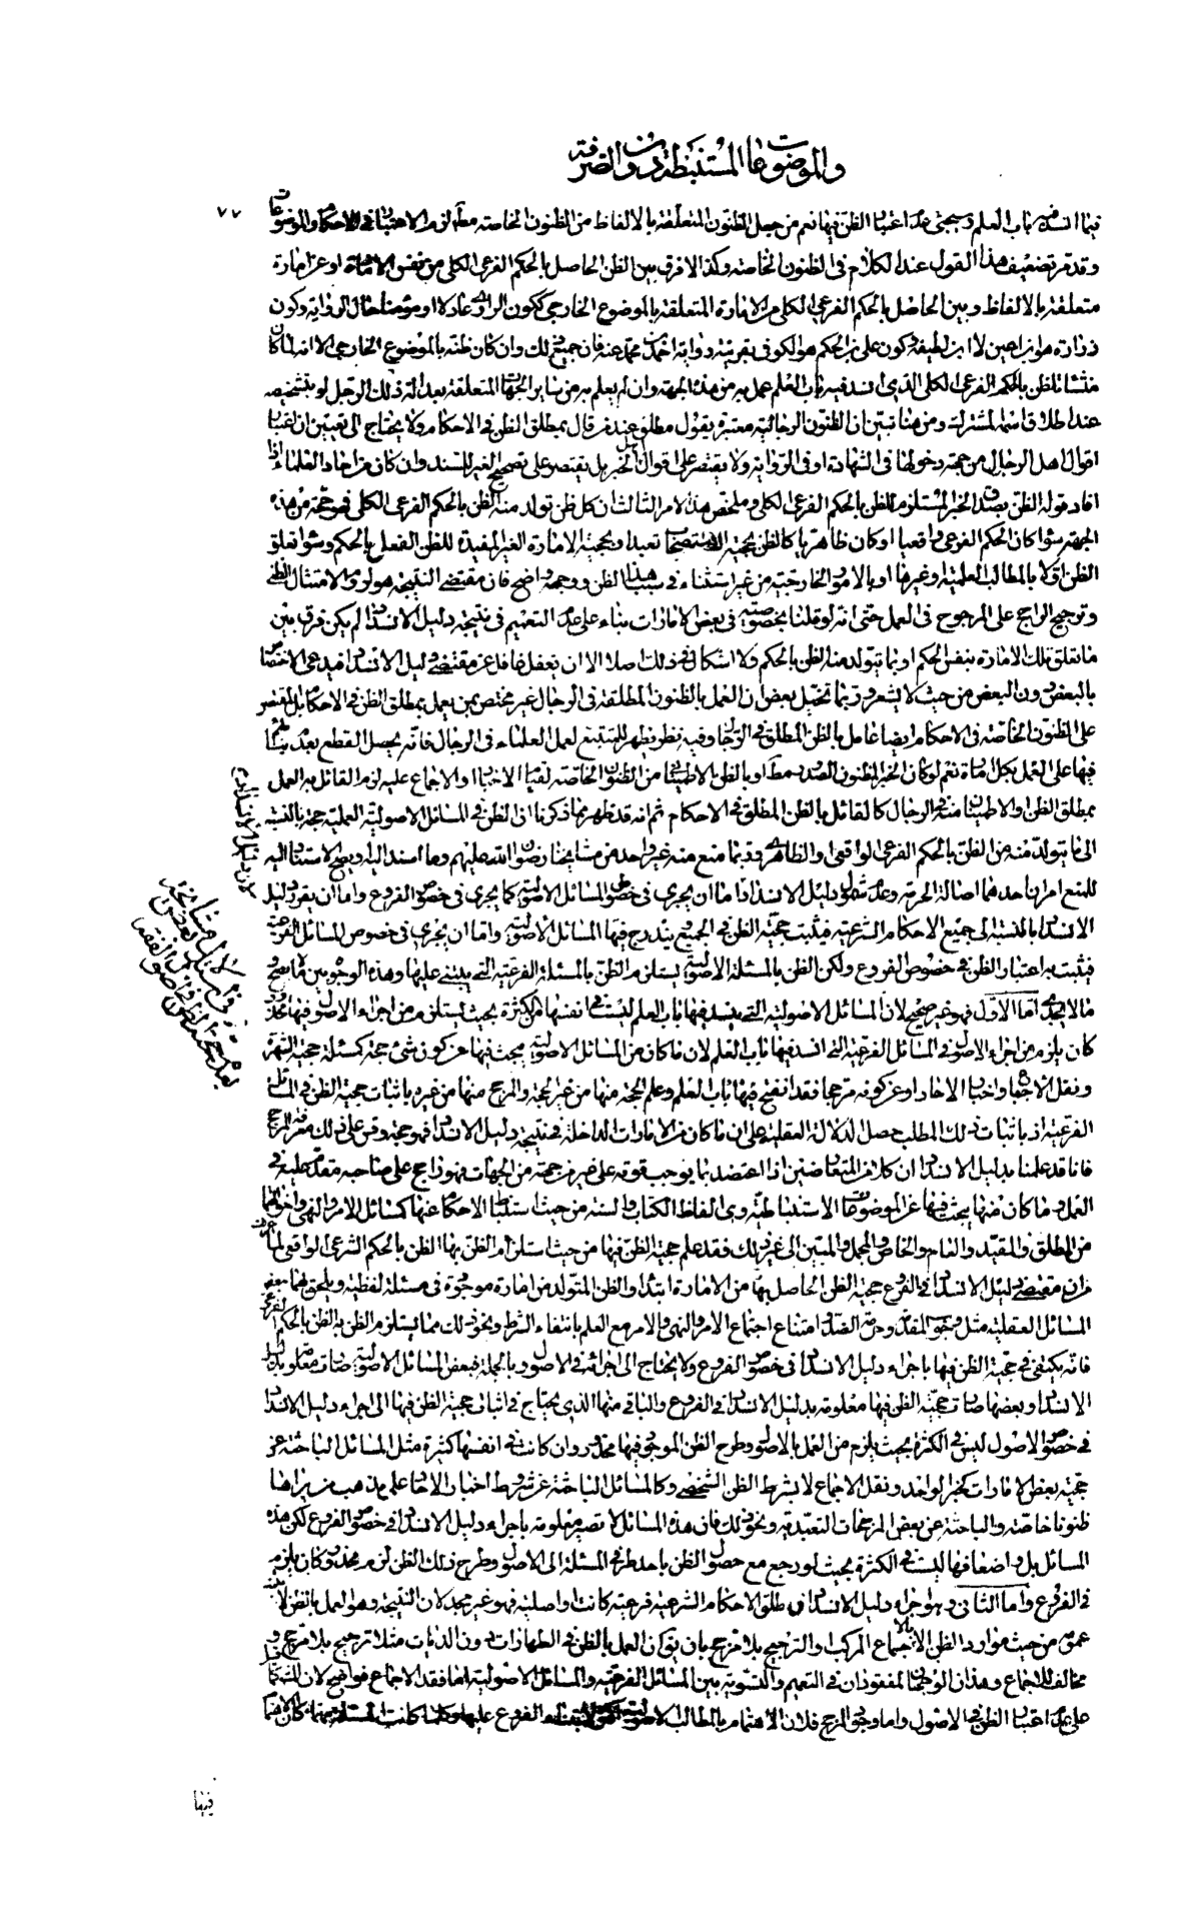 والموضوعات المستنبطة دون الصرفة
٧٧
فيما انسد فيه باب العلم وسيجيء عدم اعتبار الظن فيها نعم من جعل الظنون المتعلقة بالالفاظ من الظنون الخاصة مطلقا لزمه الاعتبار في الاحكام والموضوعات
وقد مر تضعيف هذا القول عند الكلام في الظنون الخاصة وكذا لا فرق بين الظن الحاصل بالحكم الفرعي الكلي من نفس الامارة او عن امارة
متعلقة بالالفاظ وبين الحاصل بالحكم الفرعي الكلي من الامارة المتعلقة بالموضوع الخارجي ككون الراوي عادلا او مؤمنا حال الرواية وكون
زرارة هو ابن اعين لا ابن لطيفة وكون علي بن الحكم هو الكوفي بقرينة رواية احمد بن محمد عنه فان جميع ذلك وان كان ظنا بالموضوع الخارجي الا انه لما كان
منشأ للظن بالحكم الفرعي الكلي الذي انسد فيه باب العلم عمل به من هذه الجهة وان لم يعلم به من سائر الجهات المتعلقة بعدالة ذلك الرجل او بتشخيصه
عند اطلاق اسمه المشترك ومن هنا تبين ان الظنون الرجالية معتبرة بقول مطلق عند من قال بمطلق الظن في الاحكام ولا يحتاج الى تعيين ان اعتبار
اقوال اهل الرجال من جهة دخولها في الشهادة او في الرواية ولا يقتصر على اقوال اهل الخبرة بل يقتصر على تصحيح الغير للسند وان كان من احاد العلماء اذا
افاد قوله الظن بصدق الخبر المستلزم للظن بالحكم الفرعي الكلي وملخص هذا الامر الثالث ان كل ظن تولد منه الظن بالحكم الفرعي الكلي فهو حجة من هذه
الجهة سواء كان الحكم الفرعي واقعيا او كان ظاهريا كالظن بحجية الاستصحاب تعبدا وبحجية الامارة الغير المفيدة للظن الفعلي بالحكم وسواء تعلق
الظن اولا بالمطالب العلمية او غيرها او بالامور الخارجية من غير استثناء في سبب هذا الظن ووجهه واضح فان مقتضى النتيجة هو لزوم الامتثال الظني
وترجيح الراجح على المرجوح في العمل حتى انه لو قلنا بخصوصية في بعض الامارات بناء على عدم التعميم في نتيجة دليل الانسداد لم يكن فرق بين
ما تعلق تلك الامارة بنفس الحكم او بما يتولد منه الظن بالحكم ولا اشكال في ذلك اصلا الا ان يغفل غافل عن مقتضى دليل الانسداد فيدعي الاختصاص
بالبعض دون البعض من حيث لا يشعر وربما تخيل بعض ان العمل بالظنون المطلقة في الرجال غير مختص بمن يعمل بمطلق الظن في الاحكام بل المقتصر
على الظنون الخاصة في الاحكام ايضا عامل بالظن المطلق في الرجال وفيه نظر يظهر للمتتبع لعمل العلماء في الرجال فانه يحصل القطع بعدم بنائهم
فيها على العمل بكل امارة نعم لو كان الخبر المظنون الصدور مطلقا او بالظن الاطميناني من الظنون الخاصة لقيام الاخبار او الاجماع عليه لزم القائل به العمل
بمطلق الظن او الاطميناني منه في الرجال كالقائل بالظن المطلق في الاحكام ثم انه قد ظهر بما ذكرنا ان الظن في المسائل الاصولية العملية حجة بالنسبة
الى ما يتولد منه من الظن بالحكم الفرعي الواقعي او الظاهري وربما منع منه غير واحد من مشايخنا رضوان الله عليهم وما استند اليه او يصح الاستناد اليه
للمنع امران احدهما اصالة الحرمة وعدم شمول دليل الانسداد لان دليل الانسداد اما ان يجري في خصوص المسائل الاصولية كما يجري في خصوص الفروع واما ان يقرر دليل
الانسداد بالنسبة الى جميع الاحكام الشرعية فيثبت حجية الظن في الجميع ويندرج فيها المسائل الاصولية واما ان يجري في خصوص المسائل الفرعية
فيثبت به اعتبار الظن في خصوص الفروع ولكن الظن بالمسئلة الاصولية يستلزم الظن بالمسئلة الفرعية التي يبتني عليها وهذه الوجوه بين ما لا يصح
وما لا يجدي اما الاول فهو غير صحيح لان المسائل الاصولية التي ينسد فيها باب العلم ليست في انفسها من الكثرة بحيث يستلزم من اجراء الاصول فيها محذور
كان يلزم من اجراء الاصول في المسائل الفرعية التي انسد فيها باب العلم لان ما كان من المسائل الاصولية يبحث فيها عن كون شيء حجة كمسئلة حجية الشهرة
ونقل الاجماع واخبار الاحاد او عن كونه مرجحا فقد انفتح فيها باب العلم وعلم الحجة منها من غير الحجة والمرجح منها من غيره باثبات حجية الظن في المسائل
الفرعية اذ باثبات ذلك المطلب حصل الدلالة العقلية على ان ما كان من الامارات الداخلة في نتيجة دليل الانسداد فهو حجة وقس على ذلك معرفة المرجح
فانا قد علمنا بدليل الانسداد ان كلا من المتعارضين اذا اعتضد بما يوجب قوته على غيره من جهة من الجهات فهو راجح على صاحبه مقدم عليه في
العمل وما كان منها يبحث فيها عن الموضوعات الاستنباطية وهي الفاظ الكتاب والسنة من حيث استنباط الاحكام عنها كمسائل الامر والنهي واخواتهما
من المطلق والمقيد والعام والخاص والمجمل والمبين الى غير ذلك فقد علم حجية الظن فيها من حيث استلزام الظن بها الظن بالحكم الشرعي الواقعي لما عرفت
من ان مقتضى دليل الانسداد في الفروع حجية الظن الحاصل بها من الامارة ابتداء والظن المتولد من امارة موجودة في مسئلة لفظية ويلحق بهما بعض
المسائل العقلية مثل وجوب المقدمة وحرمة الضد وامتناع اجتماع الامر والنهي والامر مع العلم بانتفاء الشرط ونحو ذلك مما يستلزم الظن به الظن بالحكم الفرعي
فانه يكتفى في حجية الظن فيها باجراء دليل الانسداد في خصوص الفروع ولا يحتاج الى اجرائه في الاصول وبالجملة فبعض المسائل الاصولية صارت معلومة بدليل
الانسداد وبعضها صارت حجية الظن فيها معلومة بدليل الانسداد في الفروع والباقي منها الذي يحتاج في اثبات حجية الظن فيها الى اجراء دليل الانسداد
في خصوص الاصول ليس في الكثرة بحيث يلزم من العمل بالاصول وطرح الظن الموجود فيها محذور وان كانت في انفسها كثيرة مثل المسائل الباحثة عن
حجية بعض الامارات كخبر الواحد ونقل الاجماع لا بشرط الظن الشخصي وكالمسائل الباحثة عن شروط اخبار الاحاد على مذهب من يراها
ظنونا خاصة والباحثة عن بعض المرجحات التعبدية ونحو ذلك فان هذه المسائل لا تصير معلومة باجراء دليل الانسداد في خصوص الفروع لكن هذه
المسائل بل واضعافها ليست في الكثرة بحيث لو رجع مع حصول الظن باحد طرفي المسئلة الى الاصول وطرح ذلك الظن لزم محذور كان يلزم
في الفروع واما الثاني وهو اجراء دليل الانسداد في مطلق الاحكام الشرعية فرعية كانت او اصلية فهو غير مجد لان النتيجة وهو العمل بالظن لا يثبت
عمومه من حيث موارد الظن الا بالاجماع المركب او الترجيح بلا مرجح بان يقال ان العمل بالظن في الطهارات دون الديات مثلا ترجيح بلا مرجح و
مخالف للاجماع وهذان الوجهان مفقودان في التعميم والتسوية بين المسائل الفرعية والمسائل الاصولية اما فقد الاجماع فواضح لان المشهور
على عدم اعتبار الظن في الاصول واما وجود المرجح فلان الاهتمام بالمطالب الاصولية اكثر لابتناء الفروع عليها وكلما كانت المسئلة مهمة كان الاهتمام
فيها